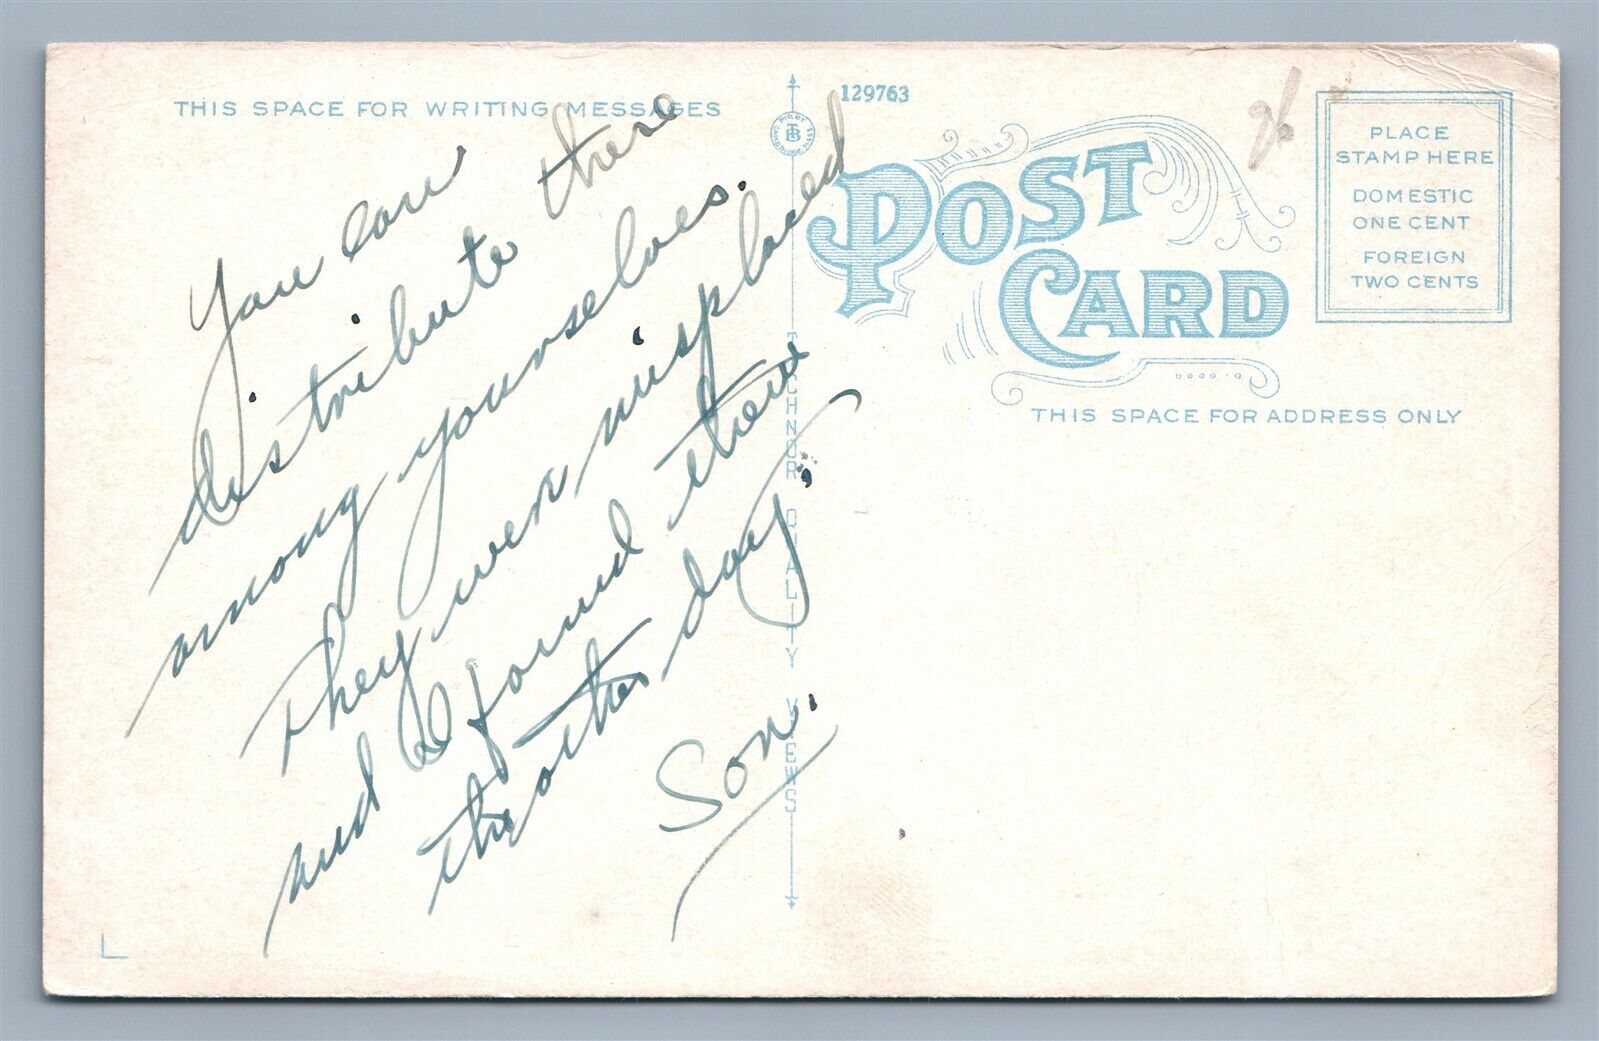 THIS SPACE FOR WRITING MESSAGES
You can
distribute these
among yourselves.
They were misplaced
and I found them
the other day.
Son.
129763
MFG. BY
TB
CAMBRIDGE, MASS
TICHNOR QUALITY VIEWS
POST
CARD
26
PLACE
STAMP HERE
DOMESTIC
ONE CENT
FOREIGN
TWO CENTS
THIS SPACE FOR ADDRESS ONLY
L